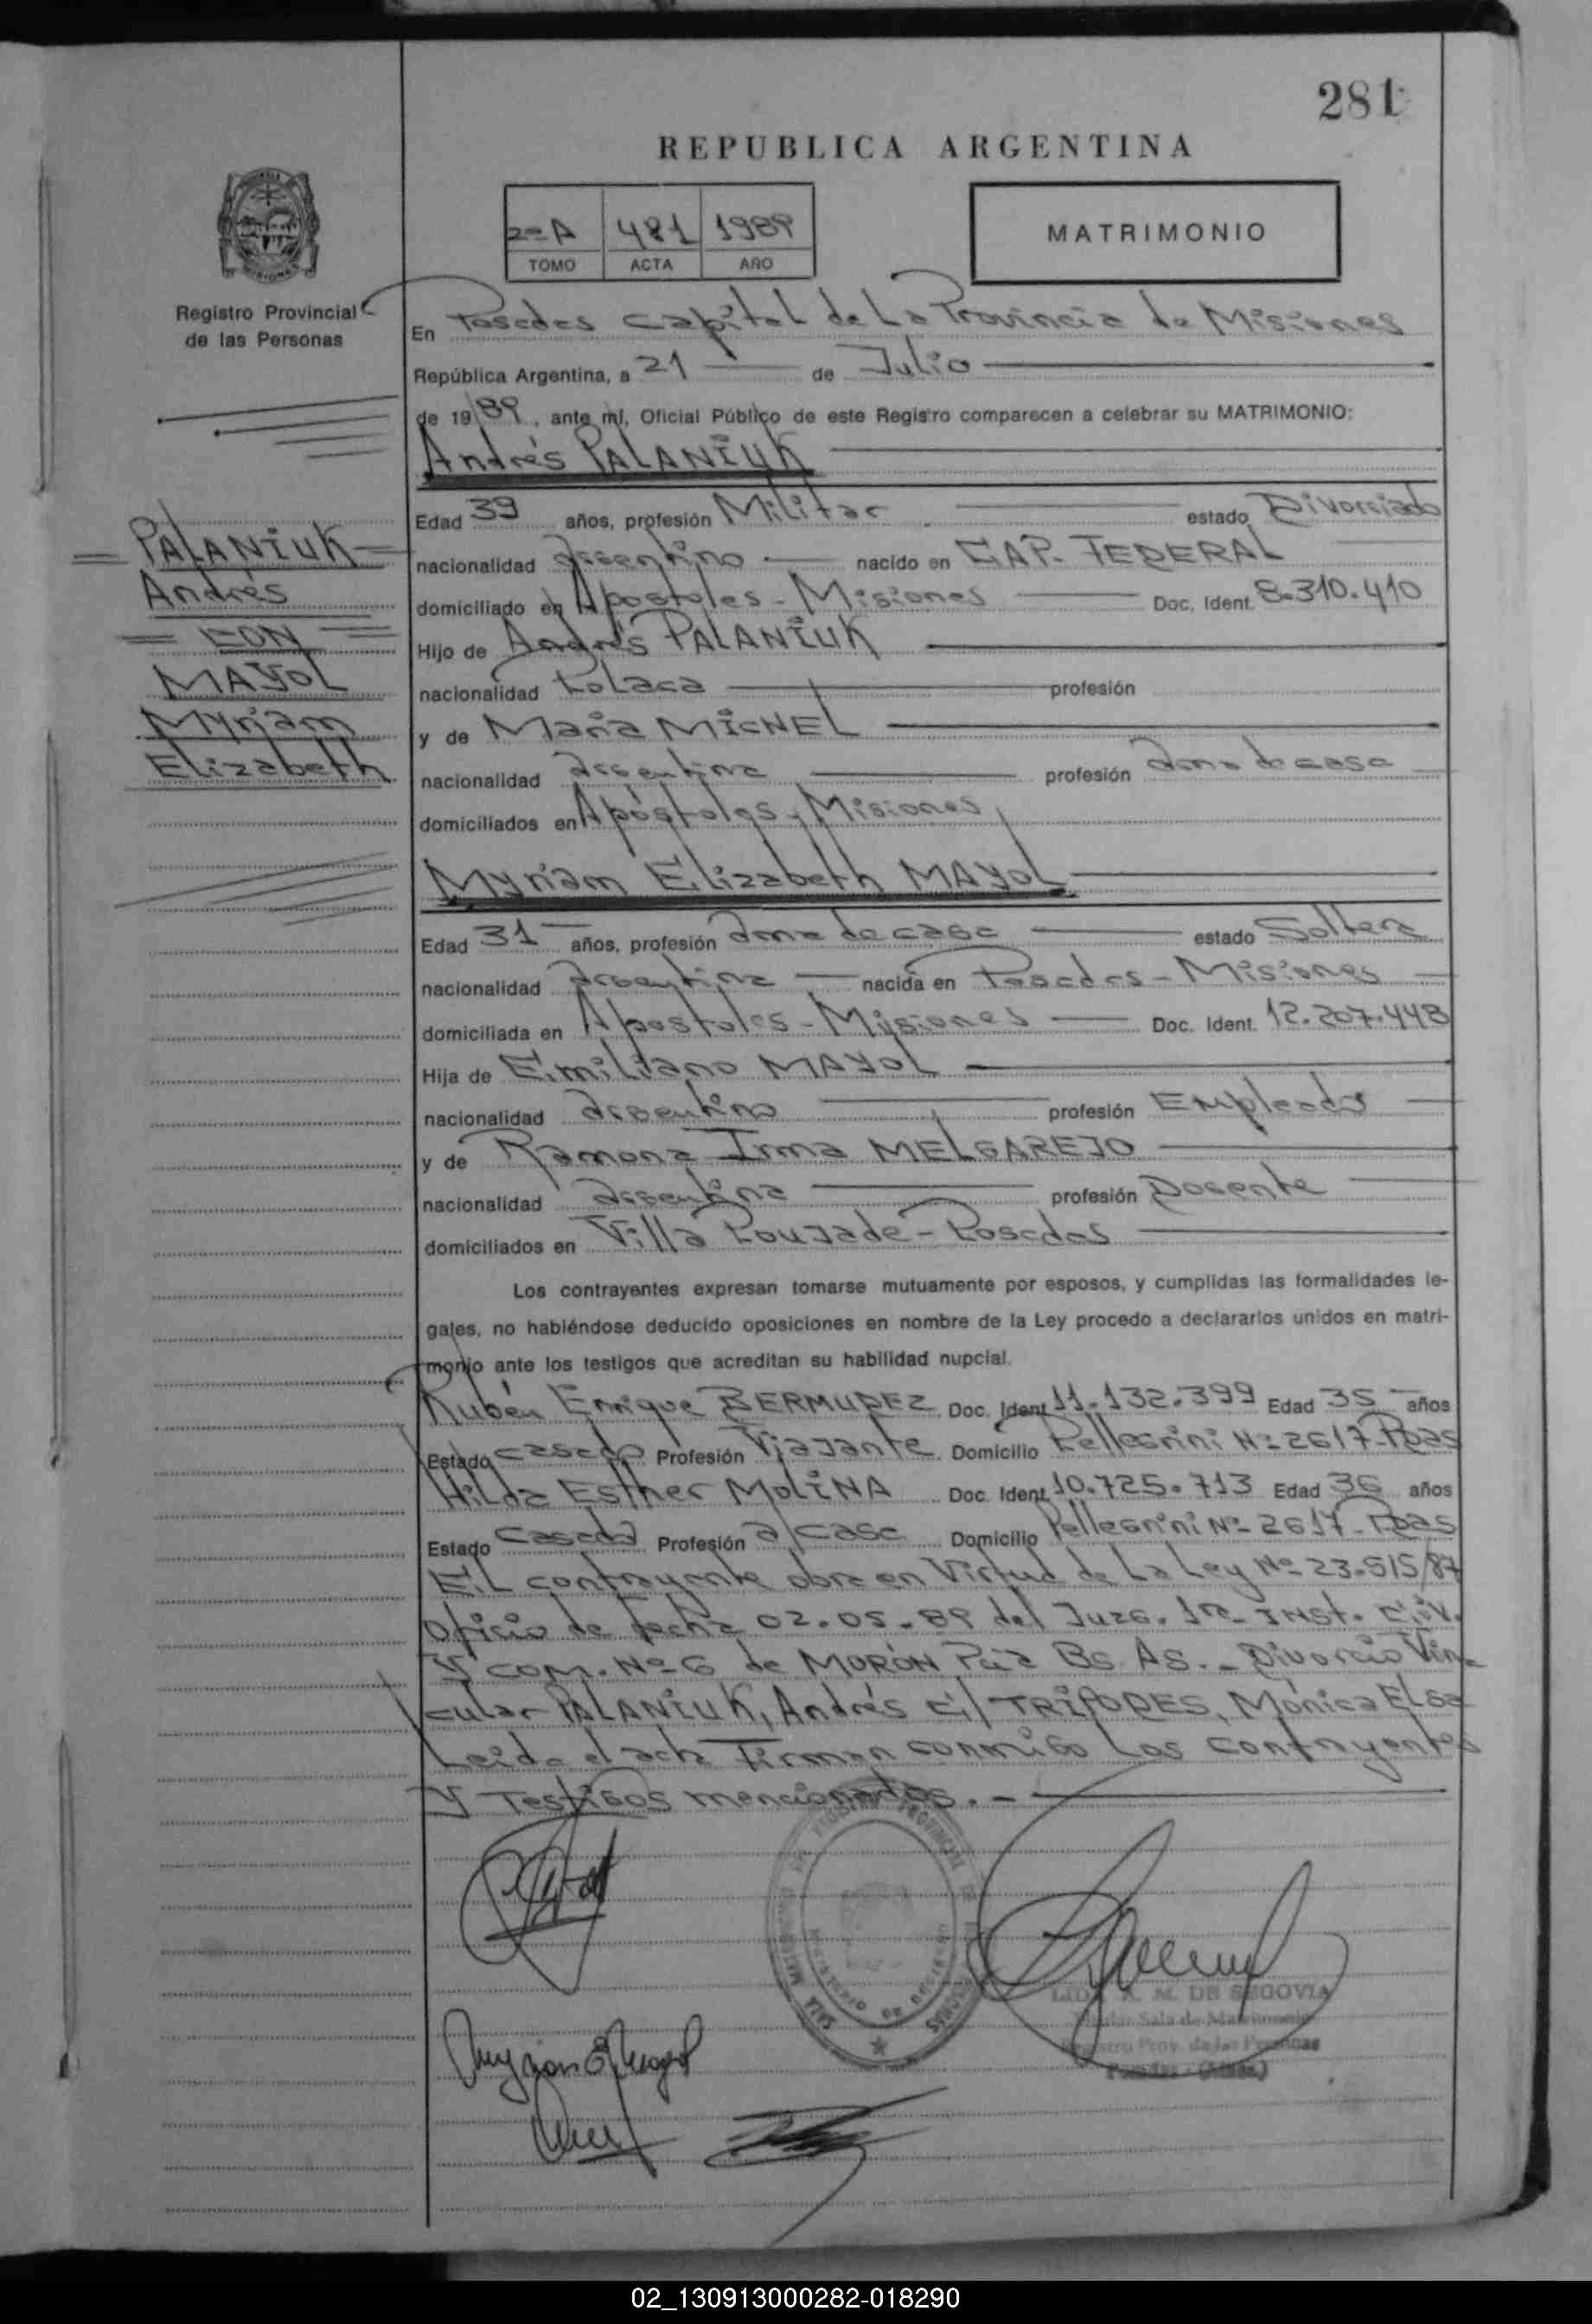 281
REPUBLICA ARGENTINA
2º A 481 1989
TOMO ACTA AÑO
MATRIMONIO
Registro Provincial
de las Personas
En Posadas Capital de La Provincia de Misiones
República Argentina, a 21 de Julio
de 19 89, ante mí, Oficial Público de este Registro comparecen a celebrar su MATRIMONIO:
Andrés PALANIUK
Edad 39 años, profesión Militar estado Divorciado
nacionalidad argentino nacido en CAP. FEDERAL
domiciliado en Apóstoles - Misiones Doc. Ident. 8.310.410
Hijo de Andrés PALANIUK
nacionalidad Polaca profesión
y de María MICHEL
nacionalidad argentina profesión ama de casa
domiciliados en Apóstoles - Misiones
PALANIUK
Andrés
= CON =
MAYOL
Myriam
Elizabeth
Myriam Elizabeth MAYOL
Edad 31 años, profesión ama de casa estado Soltera
nacionalidad argentina nacida en Posadas - Misiones
domiciliada en Apóstoles - Misiones Doc. Ident. 12.207.448
Hija de Emiliano MAYOL
nacionalidad argentino profesión Empleado
y de Ramona Irma MELGAREJO
nacionalidad argentina profesión Docente
domiciliados en Villa Poujade - Posadas
Los contrayentes expresan tomarse mutuamente por esposos, y cumplidas las formalidades le-
gales, no habiéndose deducido oposiciones en nombre de la Ley procedo a declararlos unidos en matri-
monio ante los testigos que acreditan su habilidad nupcial.
Rubén Enrique BERMUDEZ Doc. Ident 11.132.399 Edad 35 años
Estado casado Profesión Viajante Domicilio Pellegrini Nº 2617-Pdas
Hilda Esther MOLINA Doc. Ident 10.725.713 Edad 36 años
Estado Casada Profesión a/casa Domicilio Pellegrini Nº 2617-Pdas
El contrayente obra en Virtud de La Ley Nº 23.515/87
Oficio de fecha 02.05.89 del Juzg. 1ra Inst. Civ.
y COM. Nº 6 de MORON Pcia Bs. As. - Divorcio Vin-
cular PALANIUK, Andrés C/ TRIPODES, Mónica Elsa
Leída el acta Firman conmigo Los contrayentes
y Testigos mencionados. -
Myriam E. Mayol
A. M. DE SEGOVIA
Sala de Matrimonio
Registro Prov. de las Personas
Posadas - (Mnes.)
02_130913000282-018290